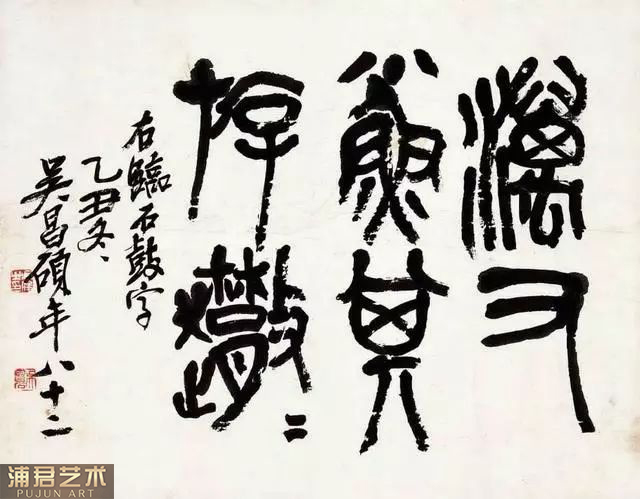 澫又
小魚其
斿
右臨石鼓字
乙丑冬、
吳昌碩年八十二
浦君艺术
PUJUN ART